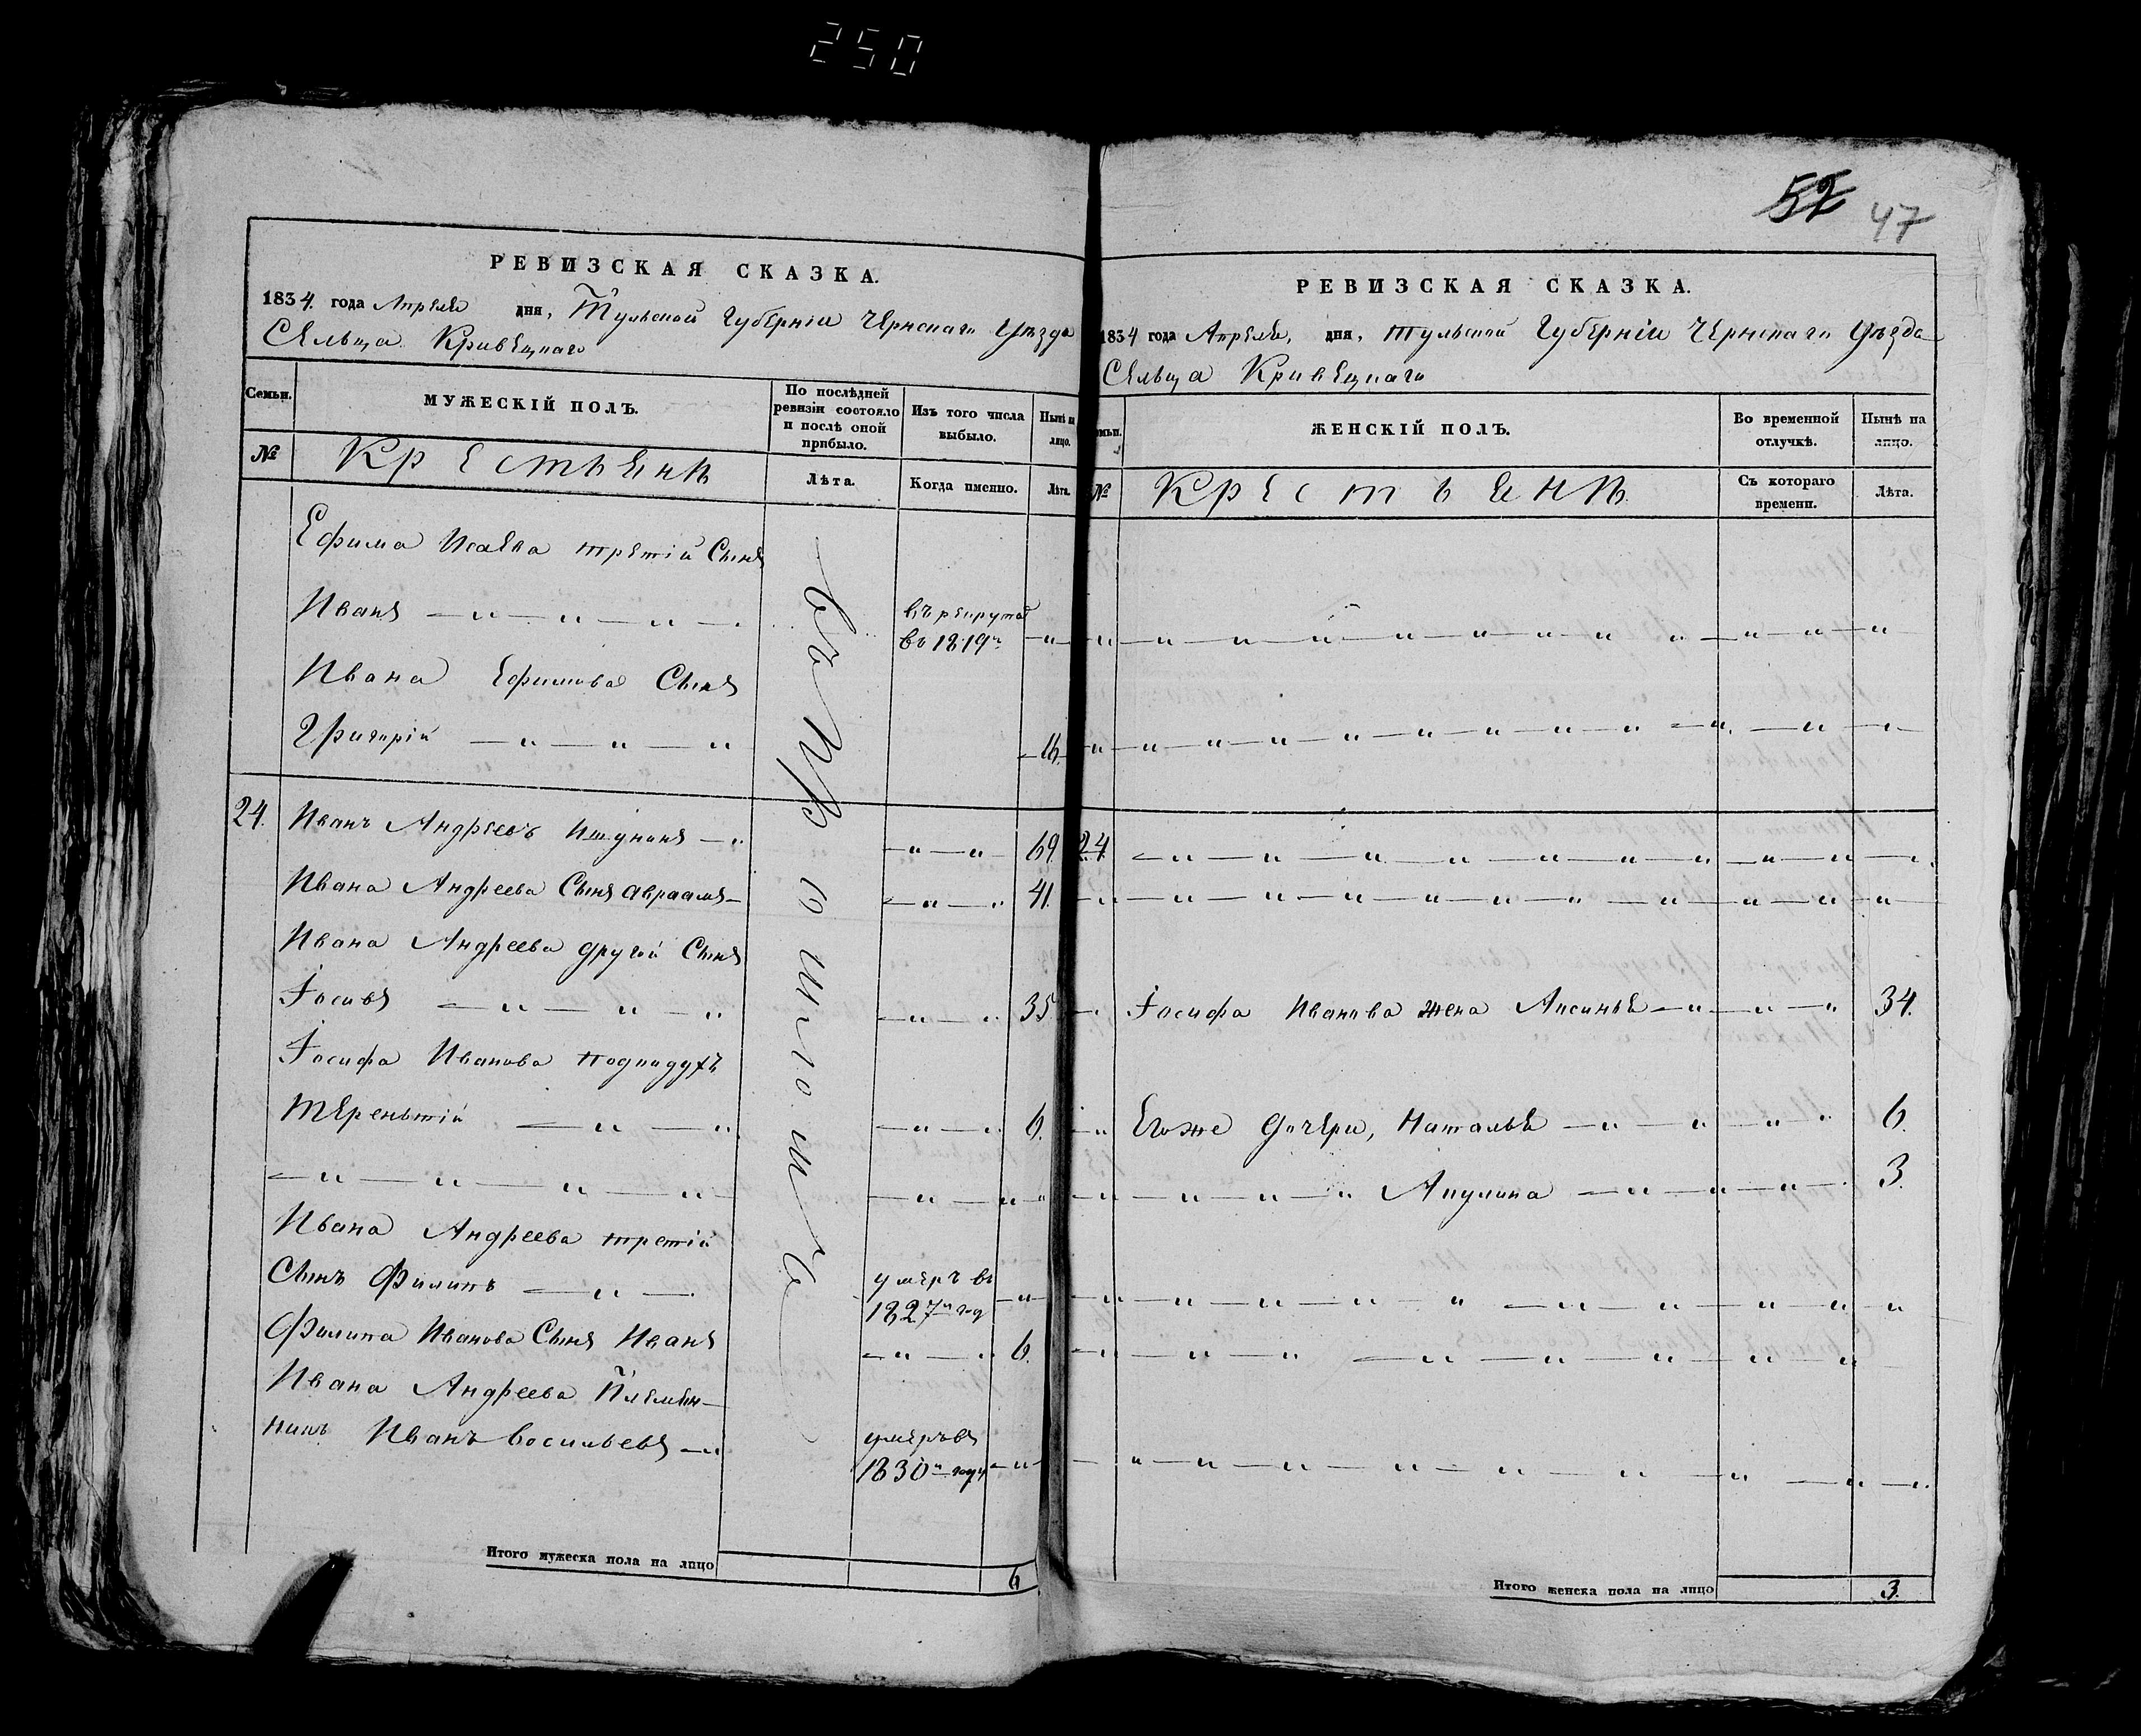 250
52 47
РЕВИЗСКАЯ СКАЗКА.
1834. года Апреля дня, Тульской Губерніи Чернскаго Уѣзда
Сельца Кривецкаго
Семьи.
МУЖЕСКІЙ ПОЛЪ.
По послѣдней ревизіи состояло и послѣ оной прибыло.
Изъ того числа выбыло.
Нынѣ на лицо.
№
Крестьянъ
Лѣта.
Когда именно.
Лѣта.
Ефима Исаева третій Сынъ
Иванъ
въ рекруты
въ 1819м
Ивана Ефимова Сынъ
Григорій 16.
24. Иванъ Андреевъ 69.
Ивана Андреева Сынъ авраамъ 41.
Ивана Андреева другой Сынъ
Іосивъ 35.
Іосифа Иванова
Терентій 6.
Ивана Андреева третій
Сынъ Филипъ
умеръ въ
1827м год
Филипа Иванова Сынъ Иванъ 6.
Ивана Андреева Племян-
никъ Иванъ Васильевъ
умеръ въ
1830м году
Итого мужеска пола на лицо 6
РЕВИЗСКАЯ СКАЗКА.
1834 года Апреля, дня, Тульской Губерніи Чернскаго Уѣзда
Сельца Кривецкаго
Семьи.
ЖЕНСКІЙ ПОЛЪ.
Во временной отлучкѣ.
Нынѣ на лицо.
№
Крестьянъ.
Съ котораго времени.
Лѣта.
24.
Іосифа Иванова жена Аксинья 34.
Егоже дочери, Наталья 6.
Акулина 3.
Итого женска пола на лицо 3.